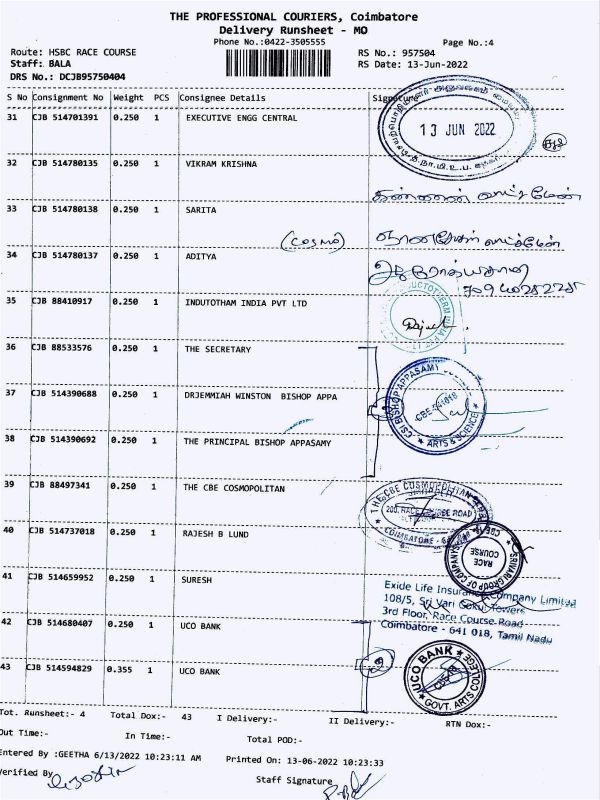 THE PROFESSIONAL COURIERS, Coimbatore
Delivery Runsheet - MO
Phone No.:0422-3505555
Page No.:4
Route: HSBC RACE COURSE
RS No.: 957504
Staff: BALA
RS Date: 13-Jun-2022
DRS No.: DCJB95750404
S No Consignment No Weight PCS Consignee Details Signature
31 CJB 514701391 0.250 1 EXECUTIVE ENGG CENTRAL
13 JUN 2022
32 CJB 514780135 0.250 1 VIKRAM KRISHNA
33 CJB 514780138 0.250 1 SARITA
(COSMO)
34 CJB 514780137 0.250 1 ADITYA
35 CJB 88410917 0.250 1 INDUTOTHAM INDIA PVT LTD
36 CJB 88533576 0.250 1 THE SECRETARY
37 CJB 514390688 0.250 1 DRJEMMIAH WINSTON BISHOP APPA
CSI BISHOP APPASAMY
CBE-641018
ARTS & SCIENCE
38 CJB 514390692 0.250 1 THE PRINCIPAL BISHOP APPASAMY
39 CJB 88497341 0.250 1 THE CBE COSMOPOLITAN
THE CBE COSMOPOLITAN
200, RACE COURSE ROAD
COIMBATORE
40 CJB 514737018 0.250 1 RAJESH B LUND
SRIVARI GROUP OF COMPANYS
RACE COURSE
CBE
41 CJB 514659952 0.250 1 SURESH
Exide Life Insurance Company Limited
108/5, Sri Vari Gokul Towers
3rd Floor, Race Course Road
Coimbatore - 641 018, Tamil Nadu
42 CJB 514680407 0.250 1 UCO BANK
43 CJB 514594829 0.355 1 UCO BANK
UCO BANK
CBE-18
GOVT. ARTS COLLEGE
Tot. Runsheet:- 4 Total Dox:- 43 I Delivery:- II Delivery:- RTN Dox:-
Out Time:- In Time:- Total POD:-
Entered By :GEETHA 6/13/2022 10:23:11 AM Printed On: 13-06-2022 10:23:33
Verified By
Staff Signature